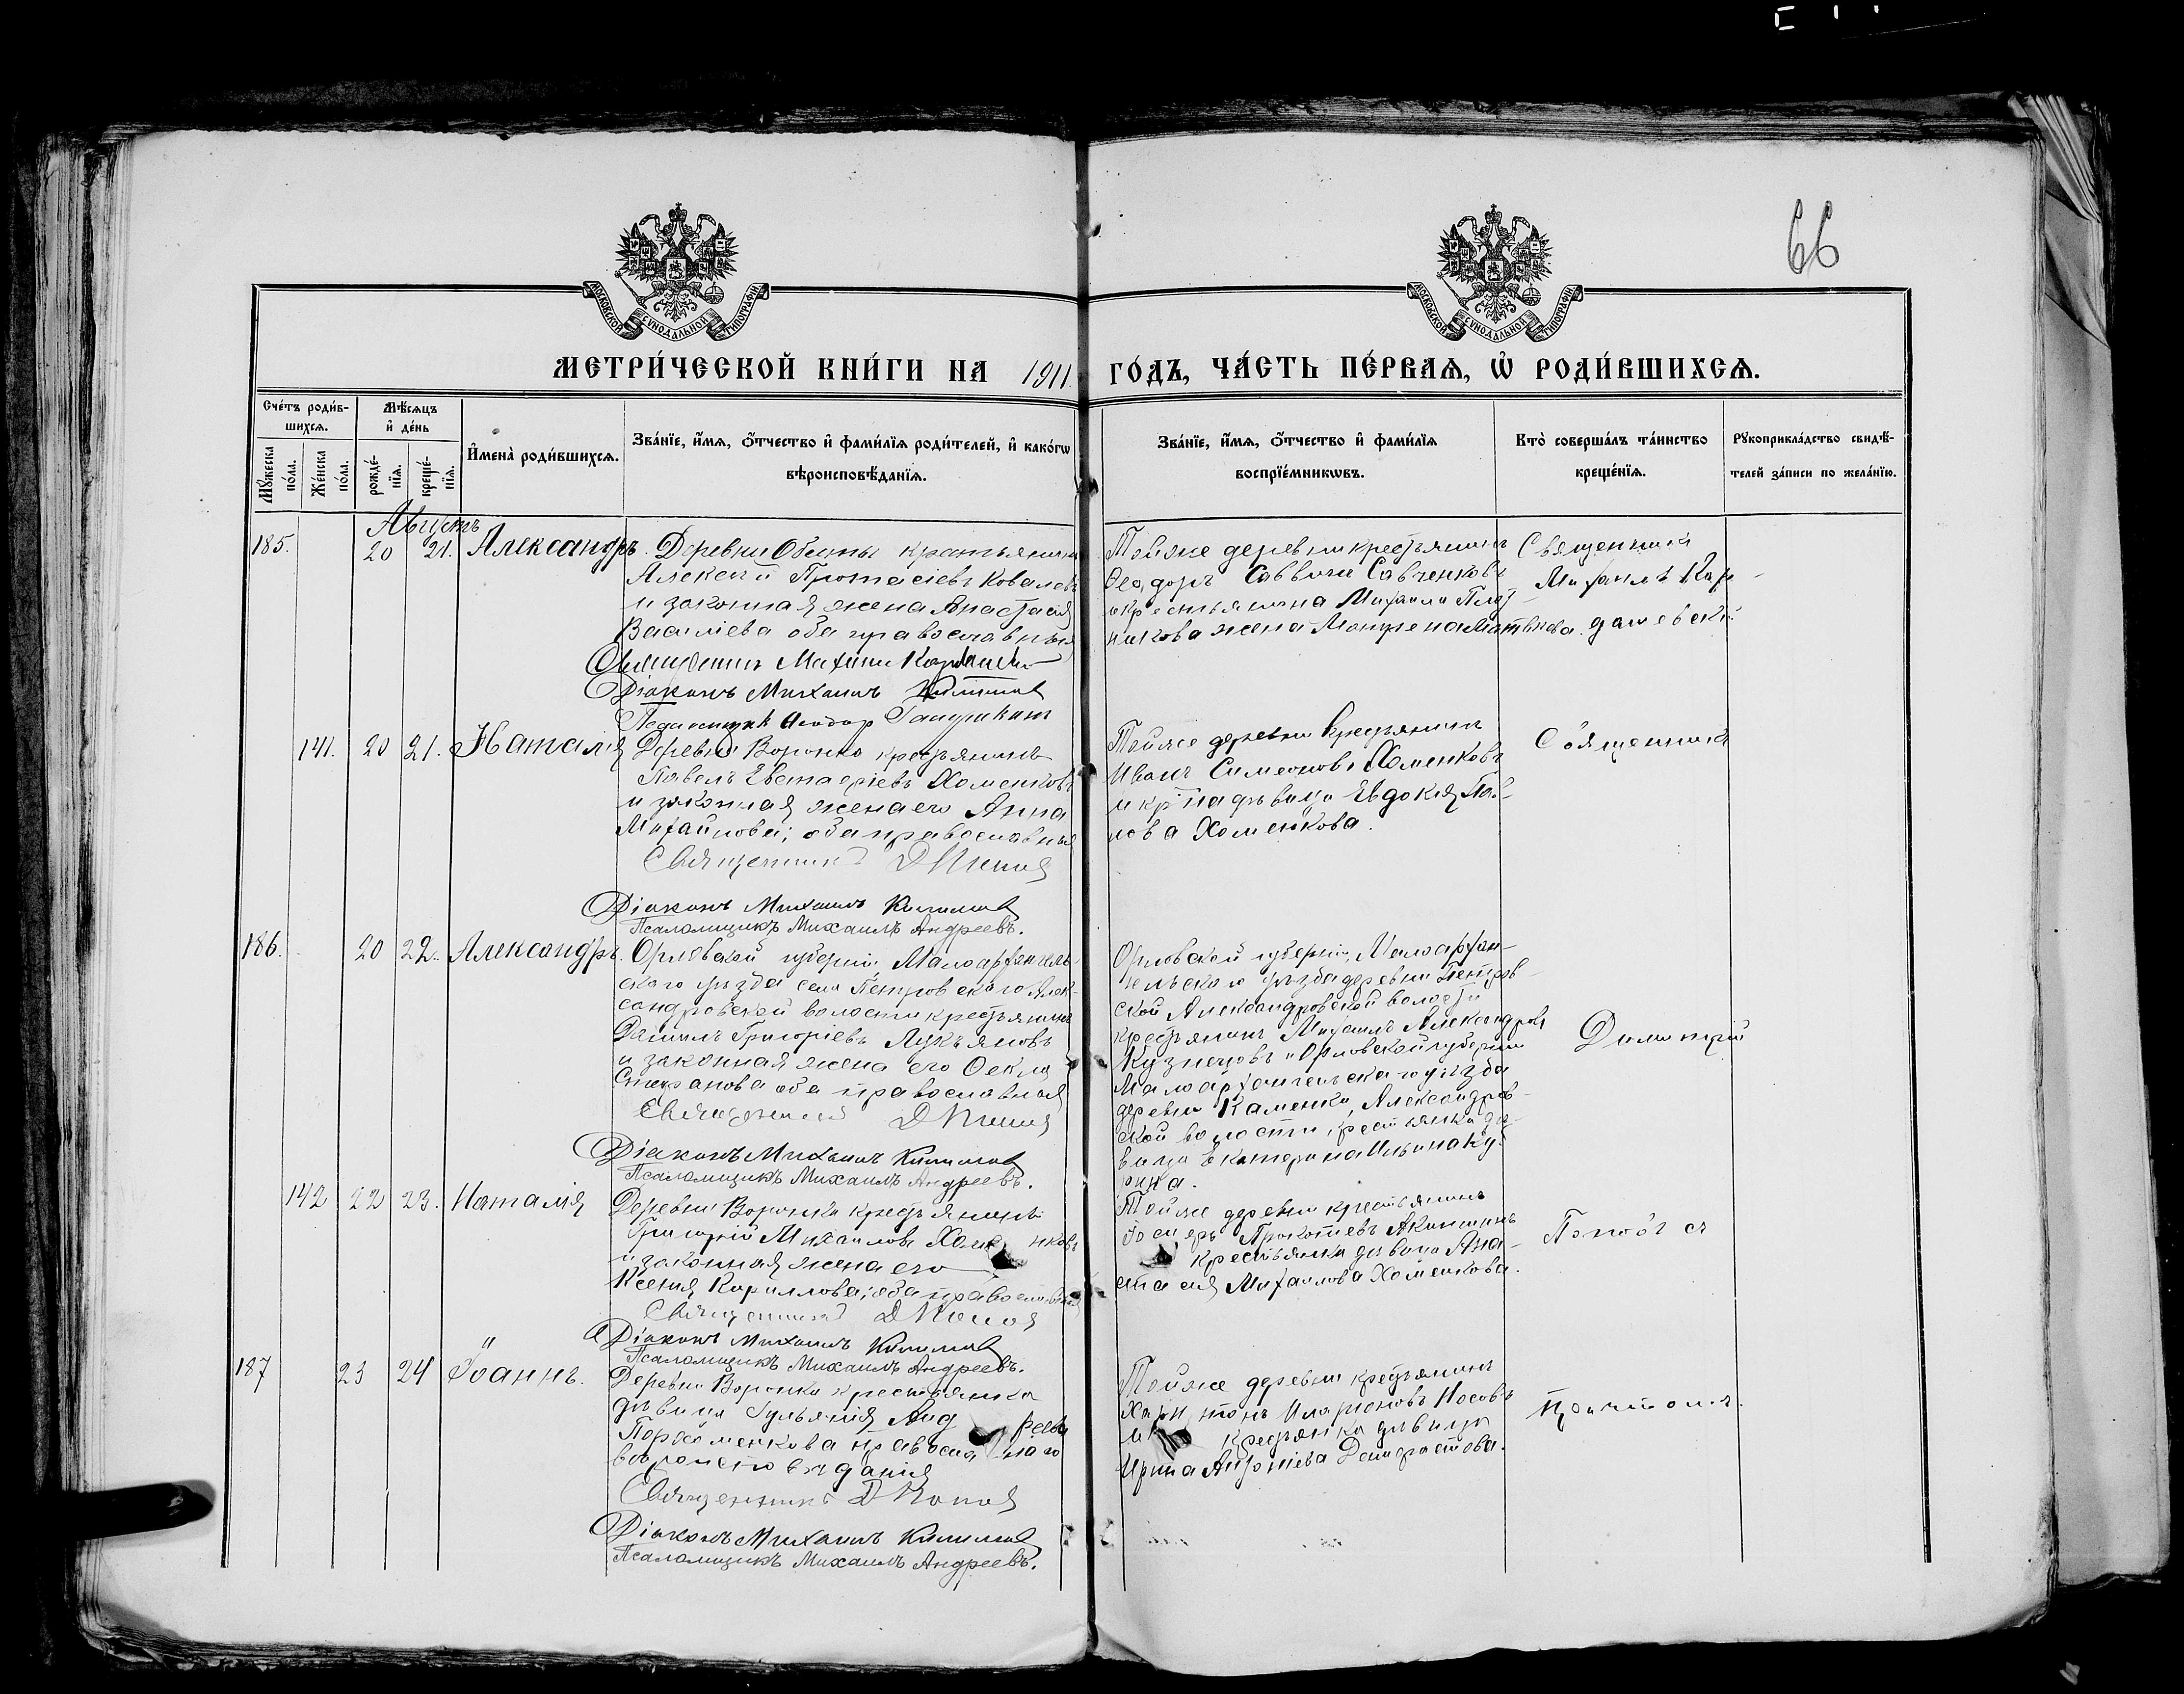 66
МОСКОВСКОЙ СѴНОДАЛЬНОЙ ТИПОГРАФІИ
МОСКОВСКОЙ СѴНОДАЛЬНОЙ ТИПОГРАФІИ
МЕТРИ́ЧЕСКОЙ КНИ́ГИ НА 1911 ГО́ДЪ, ЧА́СТЬ ПЕ́РВАѦ, Ѡ҆ РОДИ́ВШИХСѦ.
Сче́тъ роди́в-
шихсѧ.
Мꙋ́жеска по́ла.
Же́нска по́ла.
Мѣ́сѧцъ
и҆ де́нь
рожде́-
нїѧ.
креще́-
нїѧ.
И҆мена̀ роди́вшихсѧ.
Зва́нїе, и҆́мѧ, ѻ҆́тчество и҆ фами́лїѧ роди́телей, и҆ како́гѡ
вѣроисповѣ́данїѧ.
Зва́нїе, и҆́мѧ, ѻ҆́тчество и҆ фами́лїѧ
воспрїе́мникѡвъ.
Кто̀ соверша́лъ та́инство
креще́нїѧ.
Рꙋкоприкла́дство свидѣ́-
телей за́писи по жела́нїю.
Августъ
185. 20 21. Александръ.
Деревни крестьянинъ
Алексѣй Протасіевъ Ковалевъ
и законная жена Анастасія
Василіева оба православныя
Священникъ Михаилъ
Діаконъ Михаилъ
Псаломщикъ Ѳеодор
Тойже деревни крестьянинъ
Ѳеодоръ Саввичъ Савченковъ
и крестьянина Михаила Плот-
никова жена Матвѣева.
Священникъ
Михаилъ Кар-
дашевскій
141. 20 21. Наталія
Деревни Воронко крестьянинъ
Павелъ Евстафіевъ Хоменковъ
и законная жена его Анна
Михайлова; оба православныя
Священникъ Д Попов
Діаконъ Михаилъ
Псаломщикъ Михаилъ Андреевъ.
Тойже деревни крестьянинъ
Иванъ Симеоновъ Хоменковъ
и кр-на дѣвица Евдокія Пав-
лова Хоменкова.
Священникъ
186. 20 22. Александръ.
Орловской губерніи, Малоархангель-
скаго уѣзда села Петровскаго Алек-
сандровской волости крестьянинъ
Даніилъ Григоріевъ Лукьяновъ
и законная жена его Ѳекла
Стефанова оба православныя
Священникъ Д Попов
Діаконъ Михаилъ
Псаломщикъ Михаилъ Андреевъ.
Орловской губерніи, Малоархан-
гельскаго уѣзда деревни Петров-
ской Александровской волости
крестьянинъ Михаилъ Александровъ
Кузнецовъ и Орловской губерніи
Малоархангельскаго уѣзда
деревни Каменки, Александров-
ской волости крестьянка дѣ-
вица Екатерина Ильина Ку-
рина.
Димитрій
142 22 23. Наталія
Деревни Воронки крестьянинъ
Григорій Михаиловъ Хоменковъ
и законная жена его
Ксенія Кириллова; оба православныя
Священникъ Д Попов
Діаконъ Михаилъ
Псаломщикъ Михаилъ Андреевъ.
Тойже деревни крестьянинъ
Прокопіевъ Акиншинъ
крестьянка дѣвица Ана-
стасія Михаилова Хоменкова.
Поповъ съ
187 23 24 Іоаннъ.
Деревни Воронки крестьянка
дѣвица Іуліанія Андреева
Пархоменкова православнаго
вѣроисповѣданія
Священникъ Д Попов
Діаконъ Михаилъ
Псаломщикъ Михаилъ Андреевъ.
Тойже деревни крестьянинъ
Харитонъ Иларіоновъ Носовъ
и крестьянка дѣвица
Ирина
причтомъ.